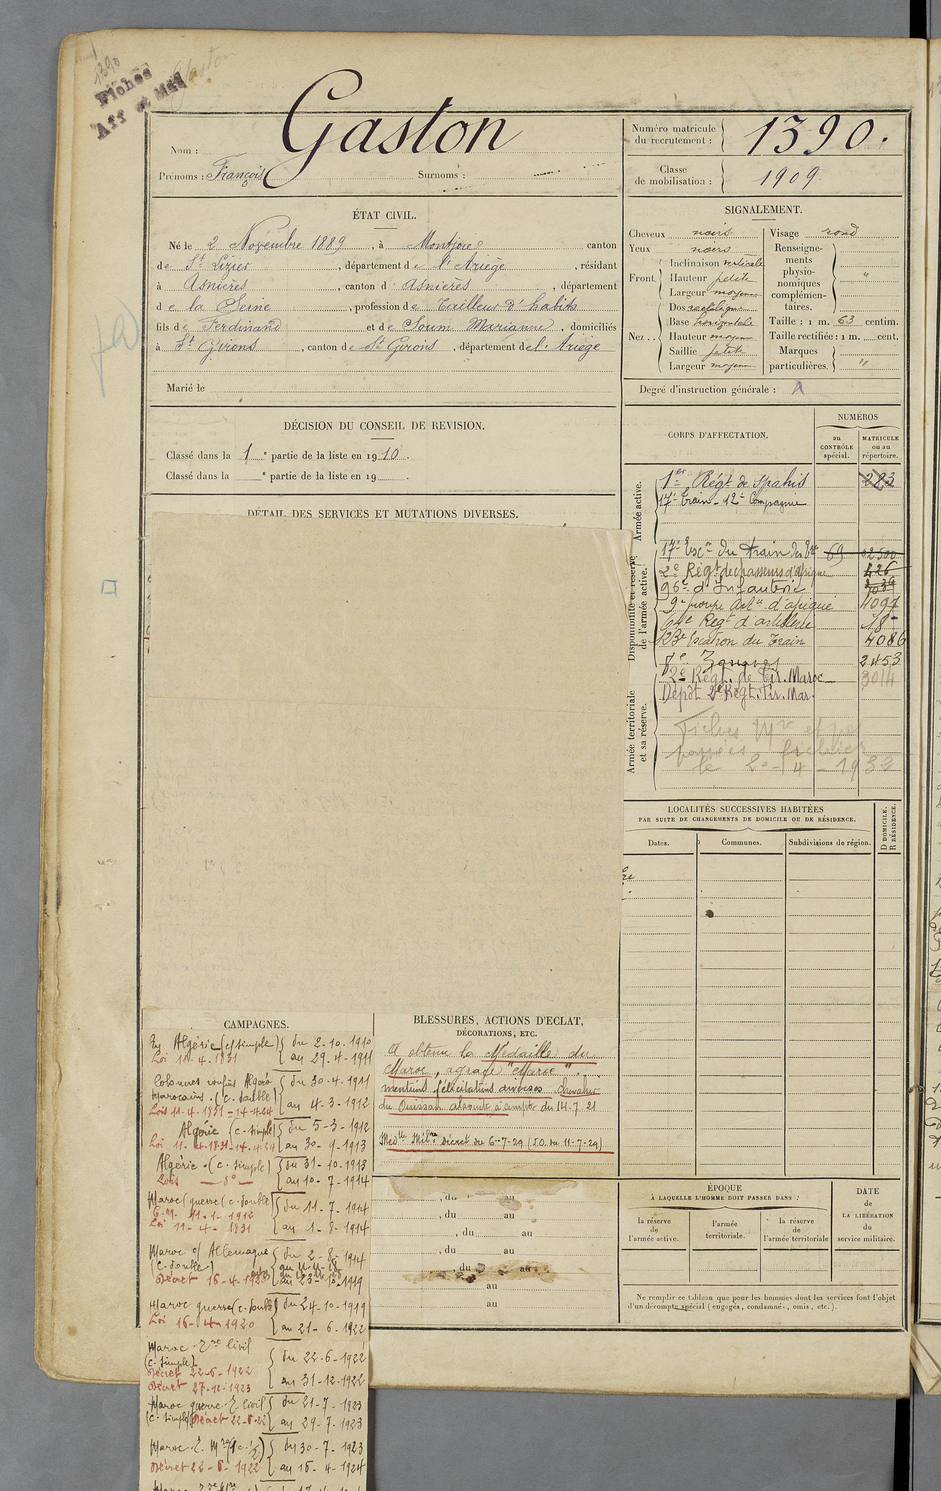 1390
Fiches
Aff et Mad
Gaston
Nom : Gaston
Prénoms : François Surnoms :
Numéro matricule
du recrutement : 1390.
Classe
de mobilisation : 1909
ÉTAT CIVIL.
Né le 2 Novembre 1889, à Montjoie canton
de St Lizier, département de l'Ariège, résidant
à Asnières, canton d'Asnières, département
de la Seine, profession de Tailleur d'habits
fils de Ferdinand et de Soum Marianne, domiciliés
à St Girons, canton de St Girons, département de l'Ariège
Marié le
SIGNALEMENT.
Cheveux noirs
Yeux noirs
Front. Inclinaison verticale
Hauteur petite
Largeur moyenne
Nez .. Dos rectiligne
Base horizontale
Hauteur moyen
Saillie petite
Largeur moyen
Visage rond
Renseigne-
ments
physio-
nomiques
complémen-
taires. "
Taille : 1 m. 63 centim.
Taille rectifiée : 1 m. cent.
Marques
particulières. "
Degré d'instruction générale : A
DÉCISION DU CONSEIL DE REVISION.
Classé dans la 1e partie de la liste en 1910.
Classé dans la e partie de la liste en 19 .
DÉTAIL DES SERVICES ET MUTATIONS DIVERSES.
CORPS D'AFFECTATION.
NUMÉROS
au
CONTRÔLE
spécial.
MATRICULE
ou au
répertoire.
Armée active.
1er Régt de Spahis 283
17e Train - 12e Compagnie
Disponibilité et réserve
de l'armée active.
17e Escon du Train des Eq. 69 02500
2e Régt de chasseurs d'afrique 426
96e d'Infanterie
9e groupe Artie d'afrique 4097
64e Regt d'artillerie 18
123e Escadron du Train 4086
8e Zouaves 2453
Armée territoriale
et sa réserve.
2e Régt. de Tir. Maroc 3014
Dépôt 2e Régt. Tir. Mar.
Fiches
le 20-4-1932
LOCALITÉS SUCCESSIVES HABITÉES
PAR SUITE DE CHANGEMENTS DE DOMICILE OU DE RÉSIDENCE.
Dates.
Communes.
Subdivisions de région.
D DOMICILE.
R RÉSIDENCE.
CAMPAGNES.
En Algérie (c/simple) du 2-10-1910
Loi 11-4-1831 au 29-4-1911
Colonnes confins Algéro du 30-4-1911
Marocains. (c. double) au 4-3-1912
Lois 11-4-1831 - 14-4-24
Algérie (c. simple) du 5-3-1912
Loi 11-4-1831-14-4-24 au 30-9-1913
Algérie (c. simple) du 31-10-1913
Lois — d° — au 10-7-1914
Maroc (guerre (c. double) du 11-7-1914
11-1-1912
Loi 11-4-1831 au 1-8-1914
Maroc c/ Allemagne du 2-8-1914
(c. double) au 11-11-18
Décret 16-4-1923 au 23-10-1919
Maroc guerre (c. double) du 24-10-1919
Loi 16-4-1920 au 21-6-1922
Maroc Zne Civil
(c. simple) du 22-6-1922
Décret 22-6-1922 au 31-12-1922
Décret 27-12-1923
Maroc guerre Z civil du 21-7-1923
(c. simple) Décret 22-6-22 au 29-7-1923
Maroc Z. Mre du 30-7-1923
Décret 22-6-1922 au 16-4-1924
BLESSURES, ACTIONS D'ÉCLAT,
DÉCORATIONS, ETC.
A obtenu la Médaille du
Maroc, agrafe "Maroc".
mentions félicitations diverses Chevalier
du Ouissam alaouite à compter du 14-7-21
Medlle Milre décret du 6-7-29 (J.O. du 11-7-29)
, du au
, du au
, du au
, du au
, du au
au
au
ÉPOQUE
À LAQUELLE L'HOMME DOIT PASSER DANS :
la réserve
de
l'armée active.
l'armée
territoriale.
la réserve
de
l'armée territoriale
DATE
de
LA LIBÉRATION
du
service militaire.
Ne remplir ce tableau que pour les hommes dont les services font l'objet
d'un décompte spécial (engagés, condamnés, omis, etc.).